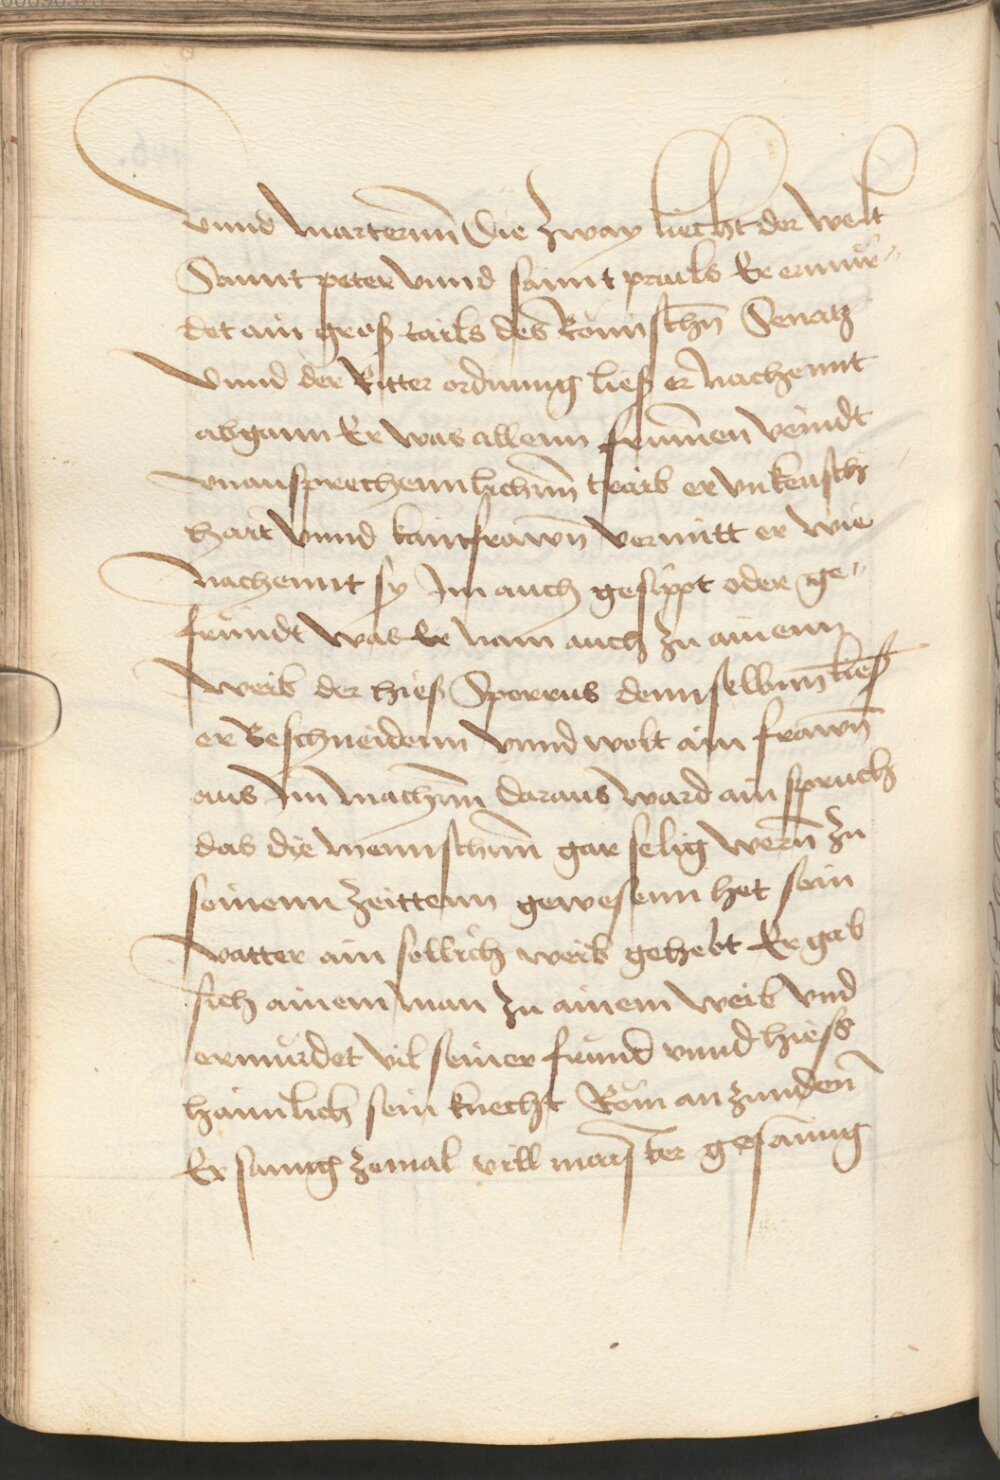 vnnd marternn̄ Die zway liecht der welt
Sannt peter vnnd sannt pauls Er ermür-
det ain gros tails des Römischn̄ Senatz
Vnnd der Ritter ordnung lies er nachennt
abgann Er was allenn frummen veindt
vnausprechennlichnn̄ traib er vnkeusch
hait vnnd kain frawn̄ vermitt er wie
nachennt sy Im auch gesippt oder ge-
fründt was Er nam auch zu ainenn
weib der hies Sporrus dennselbnn̄ lies
er Beschneidenn vnnd wolt ain frawn̄
aus Im machnn̄ daraus ward ain spruch
das die mennschnn̄ gar selig wern̄ zu
seinenn zeittenn gewesenn het sein
vatter ain sollich weib gehebt Er gab
sich ainem man zu ainem weib vnd
ermürdet vil seiner fründ vnnd hiess
haimlich sein knecht Rom anzunden̄
Er sanng zemal vill maister gesanng